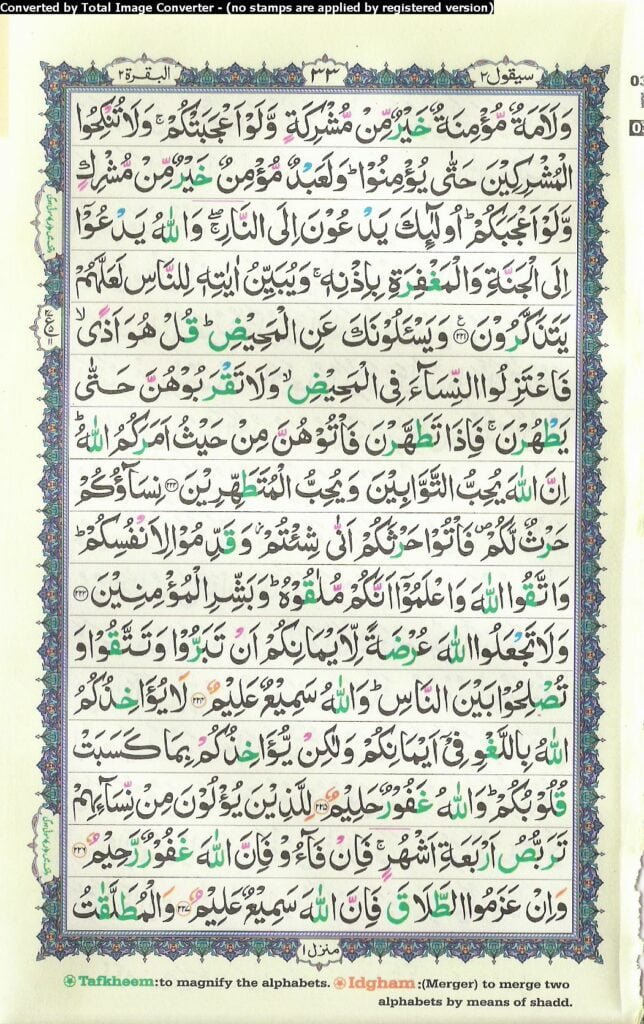 Converted by Total Image Converter - (no stamps are applied by registered version)
سيقول ٢
٣٣
البقرة ٢
وَلَاَمَةٌ مُّؤْمِنَةٌ خَيْرٌ مِّنْ مُّشْرِكَةٍ وَّلَوْ اَعْجَبَتْكُمْ ۚ وَلَا تُنْكِحُوا
الْمُشْرِكِيْنَ حَتّٰى يُؤْمِنُوْا ؕ وَلَعَبْدٌ مُّؤْمِنٌ خَيْرٌ مِّنْ مُّشْرِكٍ
وَّلَوْ اَعْجَبَكُمْ ؕ اُولٰٓئِكَ يَدْعُوْنَ اِلَى النَّارِ ۖۚ وَاللّٰهُ يَدْعُوْٓا
اِلَى الْجَنَّةِ وَالْمَغْفِرَةِ بِاِذْنِهٖ ۚ وَيُبَيِّنُ اٰيٰتِهٖ لِلنَّاسِ لَعَلَّهُمْ
يَتَذَكَّرُوْنَ ع ﴿٢٢١﴾ وَيَسْـَٔلُوْنَكَ عَنِ الْمَحِيْضِ ؕ قُلْ هُوَ اَذًى ۙ
فَاعْتَزِلُوا النِّسَآءَ فِى الْمَحِيْضِ ۙ وَلَا تَقْرَبُوْهُنَّ حَتّٰى
يَطْهُرْنَ ۚ فَاِذَا تَطَهَّرْنَ فَاْتُوْهُنَّ مِنْ حَيْثُ اَمَرَكُمُ اللّٰهُ ؕ
اِنَّ اللّٰهَ يُحِبُّ التَّوَّابِيْنَ وَيُحِبُّ الْمُتَطَهِّرِيْنَ ﴿٢٢٢﴾ نِسَآؤُكُمْ
حَرْثٌ لَّكُمْ ۪ فَاْتُوْا حَرْثَكُمْ اَنّٰى شِئْتُمْ ؗ وَقَدِّمُوْا لِاَنْفُسِكُمْ ؕ
وَاتَّقُوا اللّٰهَ وَاعْلَمُوْٓا اَنَّكُمْ مُّلٰقُوْهُ ؕ وَبَشِّرِ الْمُؤْمِنِيْنَ ﴿٢٢٣﴾
وَلَا تَجْعَلُوا اللّٰهَ عُرْضَةً لِّاَيْمَانِكُمْ اَنْ تَبَرُّوْا وَتَتَّقُوْا وَ
تُصْلِحُوْا بَيْنَ النَّاسِ ؕ وَاللّٰهُ سَمِيْعٌ عَلِيْمٌ ﴿٢٢٤﴾ لَا يُؤَاخِذُكُمُ
اللّٰهُ بِاللَّغْوِ فِىْٓ اَيْمَانِكُمْ وَلٰكِنْ يُّؤَاخِذُكُمْ بِمَا كَسَبَتْ
قُلُوْبُكُمْ ؕ وَاللّٰهُ غَفُوْرٌ حَلِيْمٌ ﴿٢٢٥﴾ لِلَّذِيْنَ يُؤْلُوْنَ مِنْ نِّسَآئِهِمْ
تَرَبُّصُ اَرْبَعَةِ اَشْهُرٍ ۚ فَاِنْ فَآءُوْ فَاِنَّ اللّٰهَ غَفُوْرٌ رَّحِيْمٌ ﴿٢٢٦﴾
وَاِنْ عَزَمُوا الطَّلَاقَ فَاِنَّ اللّٰهَ سَمِيْعٌ عَلِيْمٌ ﴿٢٢٧﴾ وَالْمُطَلَّقٰتُ
منزل ١
Tafkheem:to magnify the alphabets. Idgham :(Merger) to merge two
alphabets by means of shadd.